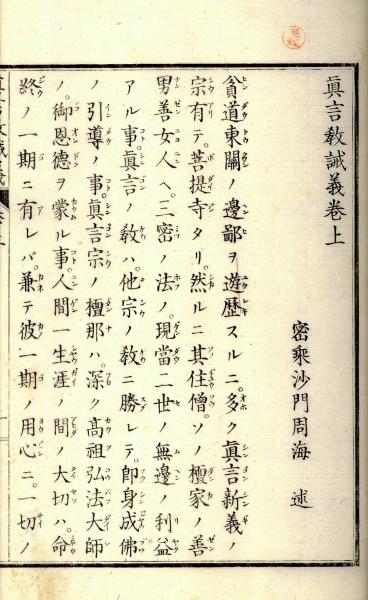 眞言教誡義卷上
密乘沙門周海 述
貧道東關ノ邊鄙ヲ遊歷スルニ。多ク眞言新義ノ
宗有テ。菩提寺タリ。然ルニ其住僧。ソノ檀家ノ善
男善女人ヘ。三密ノ法ノ。現當二世ノ無邊ノ利益
アル事。眞言ノ教ハ。他宗ノ教ニ勝レテ。卽身成佛
ノ引導ノ事。眞言宗ノ檀那ハ。深ク高祖弘法大師
ノ。御恩德ヲ蒙ル事。人間一生涯ノ間ノ大切ハ。命
終ノ一期ニ有レバ。兼テ彼一期ノ用心ニ。一切ノ